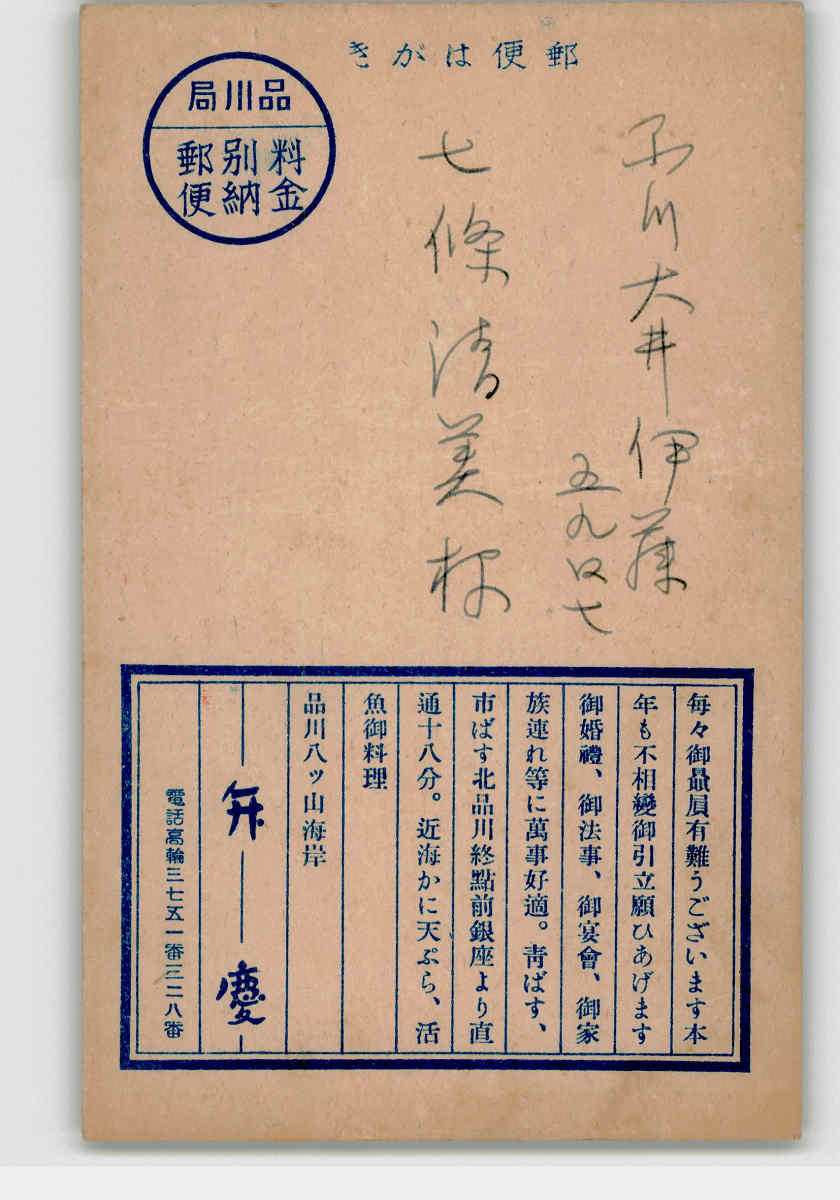 郵便はがき
品川局
料金
別納
郵便
品川大井伊藤
五九四七
七條清美様
每々御贔屓有難うございます本
年も不相變御引立願ひあげます
御婚禮、御法事、御宴會、御家
族連れ等に萬事好適。靑ばす、
市ばす北品川終點前銀座より直
通十八分。近海かに天ぷら、活
魚御料理
品川八ッ山海岸
弁慶
電話高輪三七五一番三二二八番